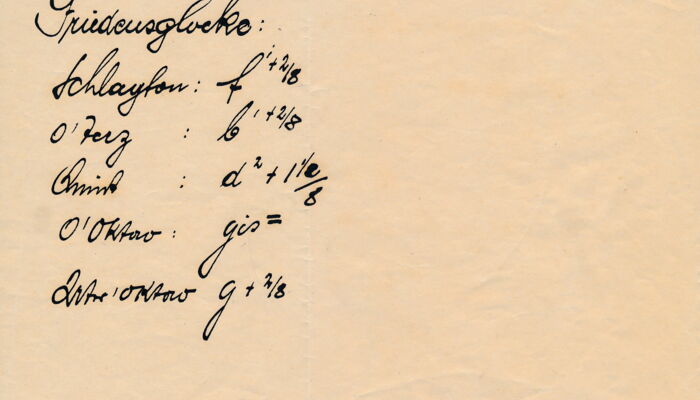 Friedensglocke:
Schlagton: f' +2/8
O'Terz : b' +2/8
Quint : d² + 1 1/2/8
O'Oktav : gis =
Untr'oktav g + 2/8